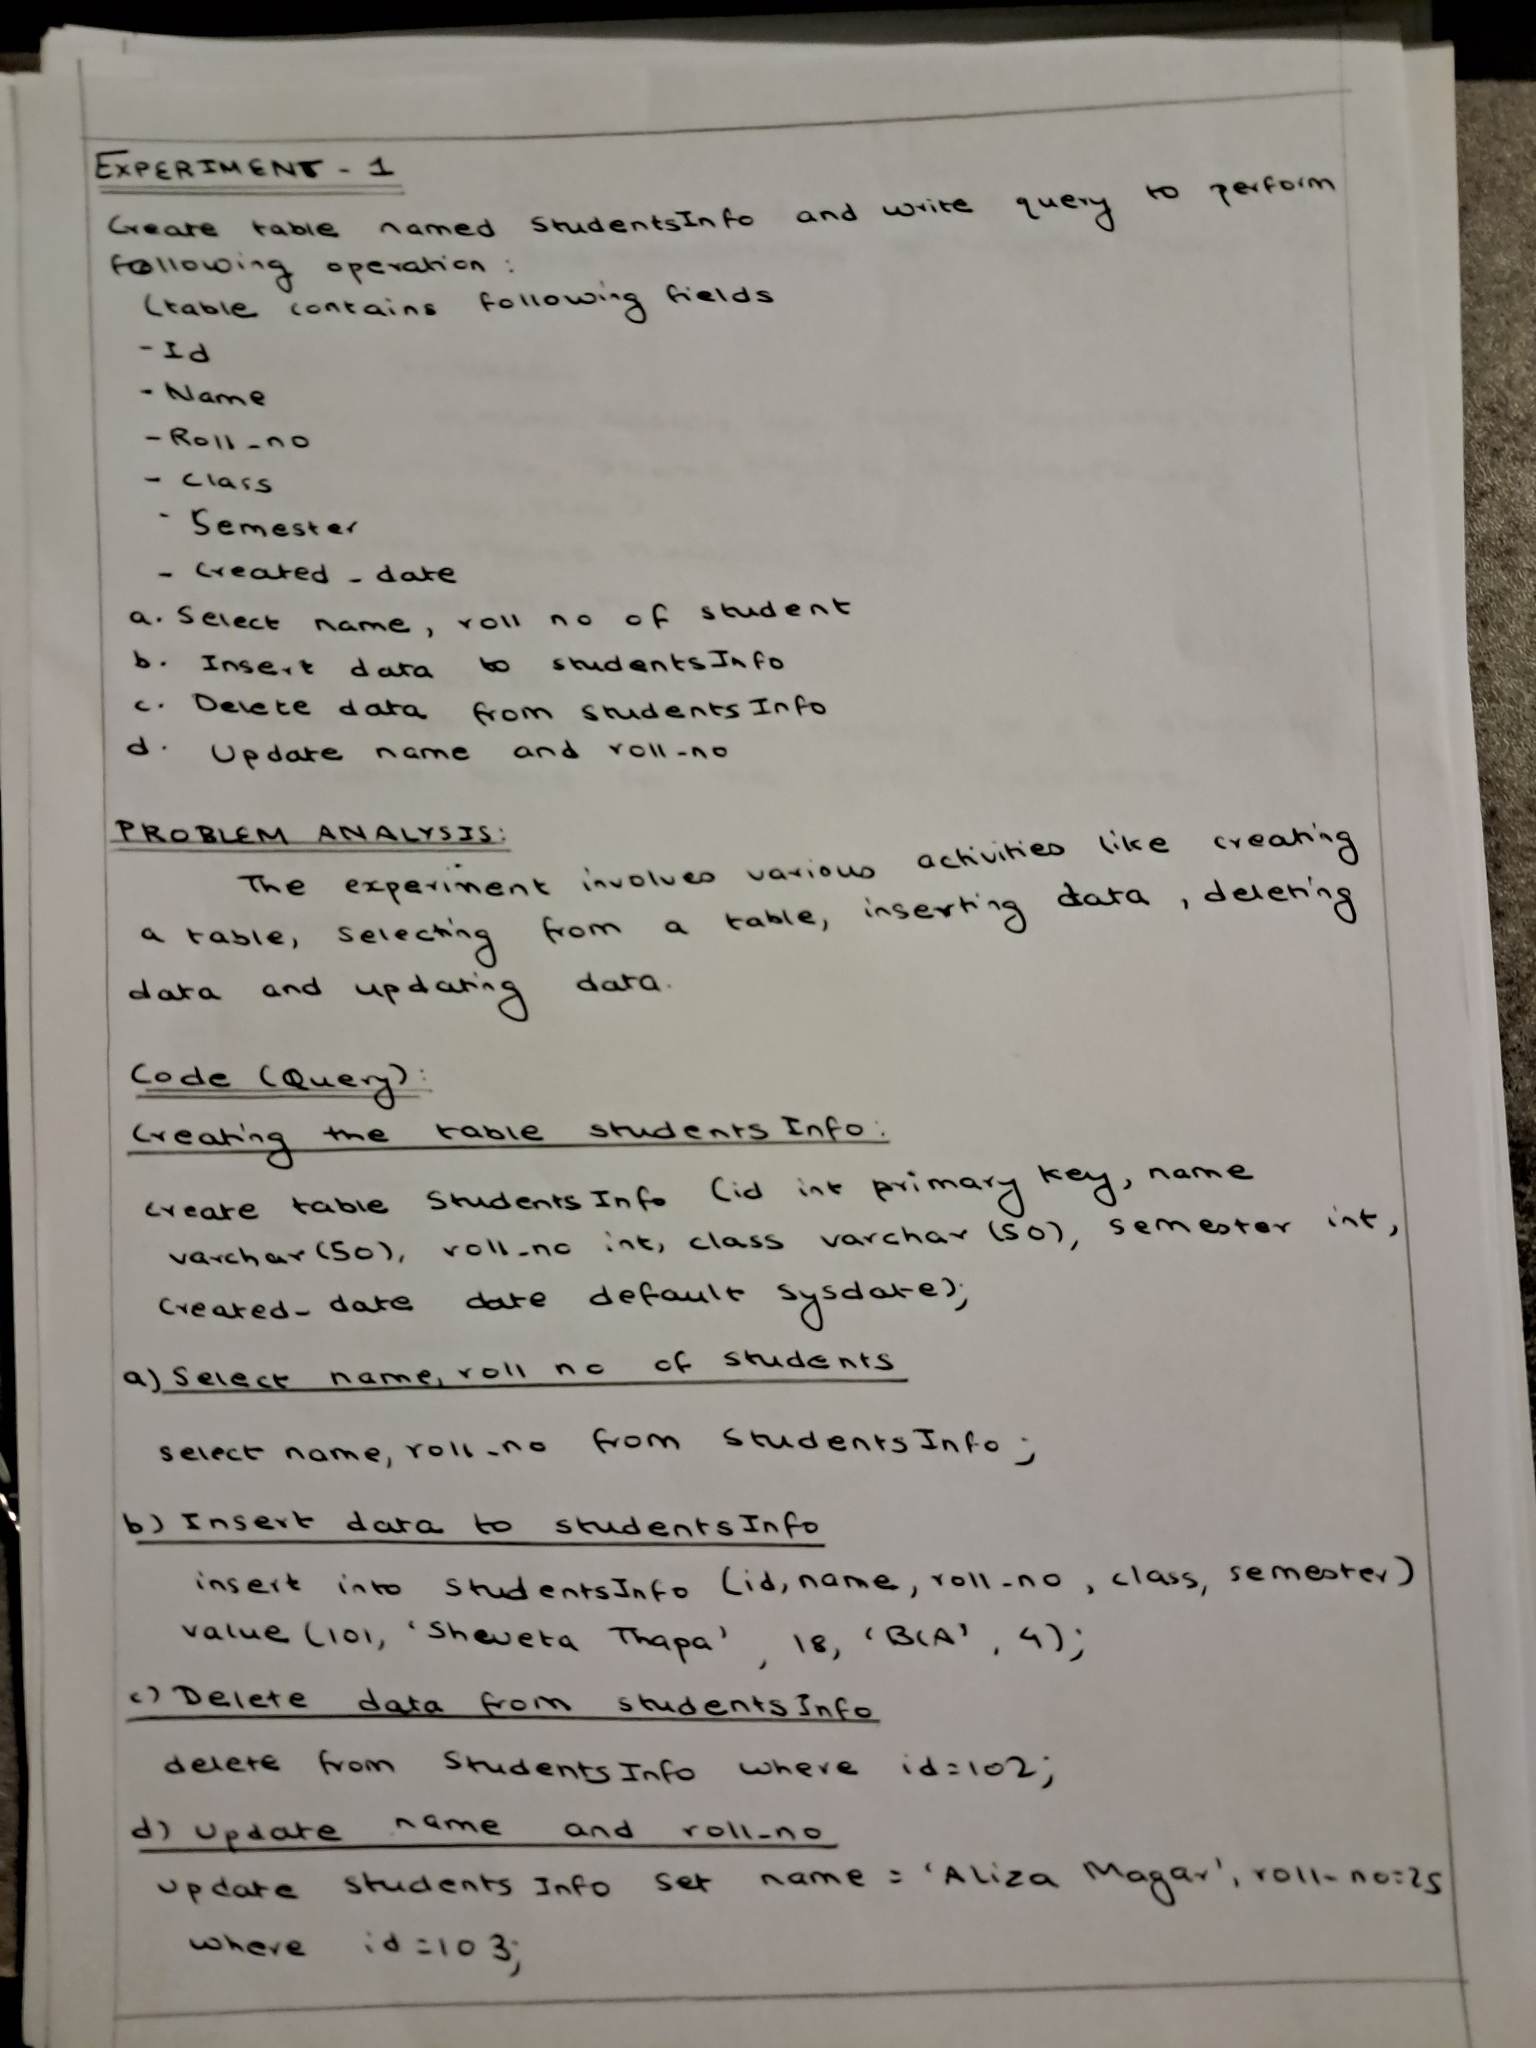 EXPERIMENT - 1
Create table named StudentsInfo and write query to perform
following operation :
(table contains following fields
- Id
- Name
- Roll_no
- Class
- Semester
- Created_date
a. Select name, roll no of student
b. Insert data to studentsInfo
c. Delete data from studentsInfo
d. Update name and roll-no
PROBLEM ANALYSIS:
The experiment involves various activities like creating
a table, selecting from a table, inserting data, deleting
data and updating data.
Code (Query):
Creating the table studentsInfo:
create table StudentsInfo (id int primary key, name
varchar(50), roll_no int, class varchar(50), semester int,
created_date date default sysdate);
a) Select name, roll no of students
select name, roll_no from StudentsInfo;
b) Insert data to studentsInfo
insert into StudentsInfo (id, name, roll-no, class, semester)
value (101, 'Sheveta Thapa', 18, 'BCA', 4);
c) Delete data from studentsInfo
delete from StudentsInfo where id=102;
d) Update name and roll_no
update studentsInfo set name = 'Aliza Magar', roll-no=25
where id=103;